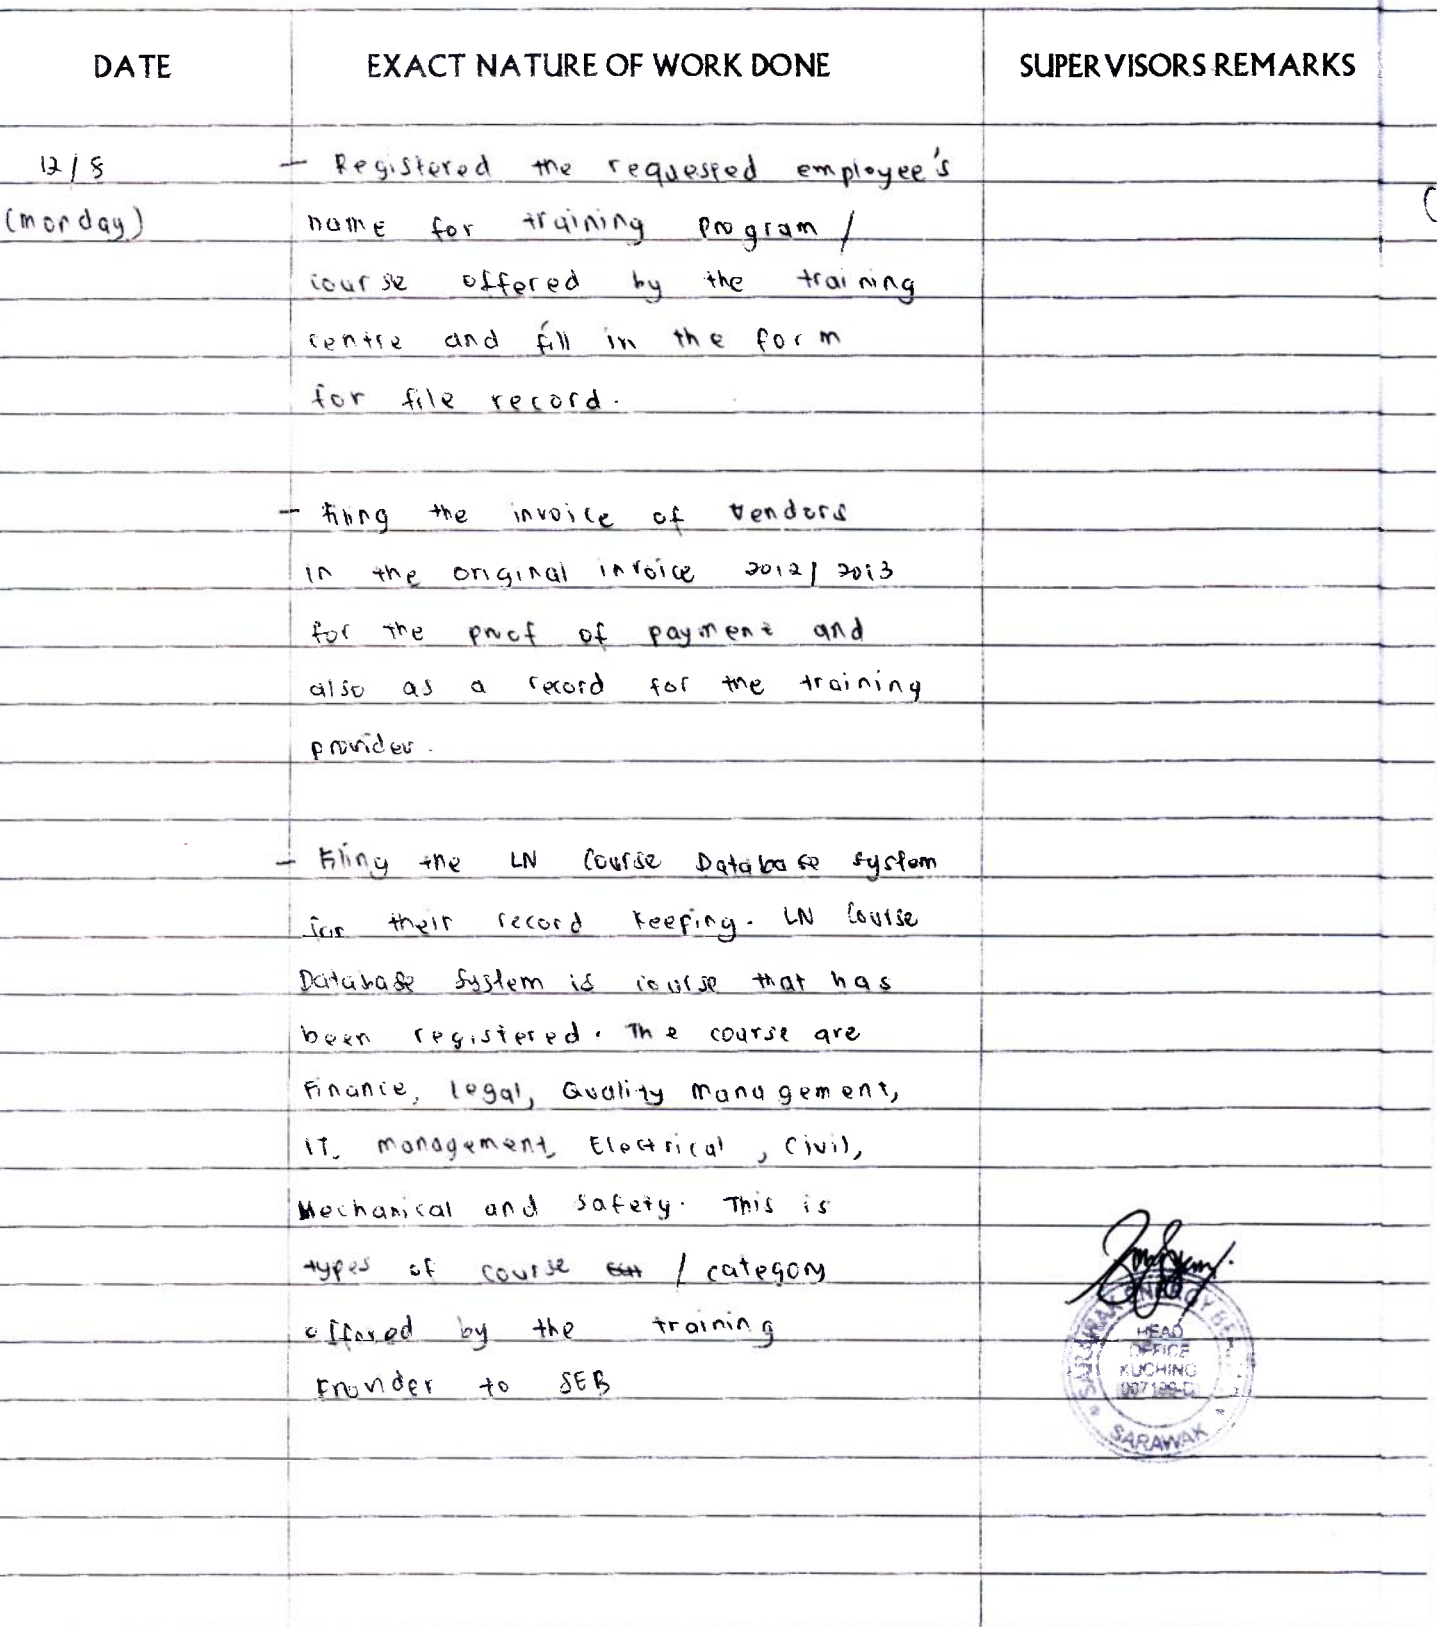 DATE EXACT NATURE OF WORK DONE SUPERVISORS REMARKS
12/8 - Registered the requested employee's
(monday) name for training program /
course offered by the training
centre and fill in the form
for file record.
- Filing the invoice of vendors
in the original invoice 2012/2013
for the proof of payment and
also as a record for the training
provider.
- Filing the LN Course Database System
for their record keeping. LN Course
Database System is course that has
been registered. The course are
Finance, Legal, Quality Management,
IT, management, Electrical, Civil,
Mechanical and Safety. This is
types of course / category
offered by the training
Provider to SEB
SARAWAK ENERGY BE
HEAD
OFFICE
KUCHING
SARAWAK